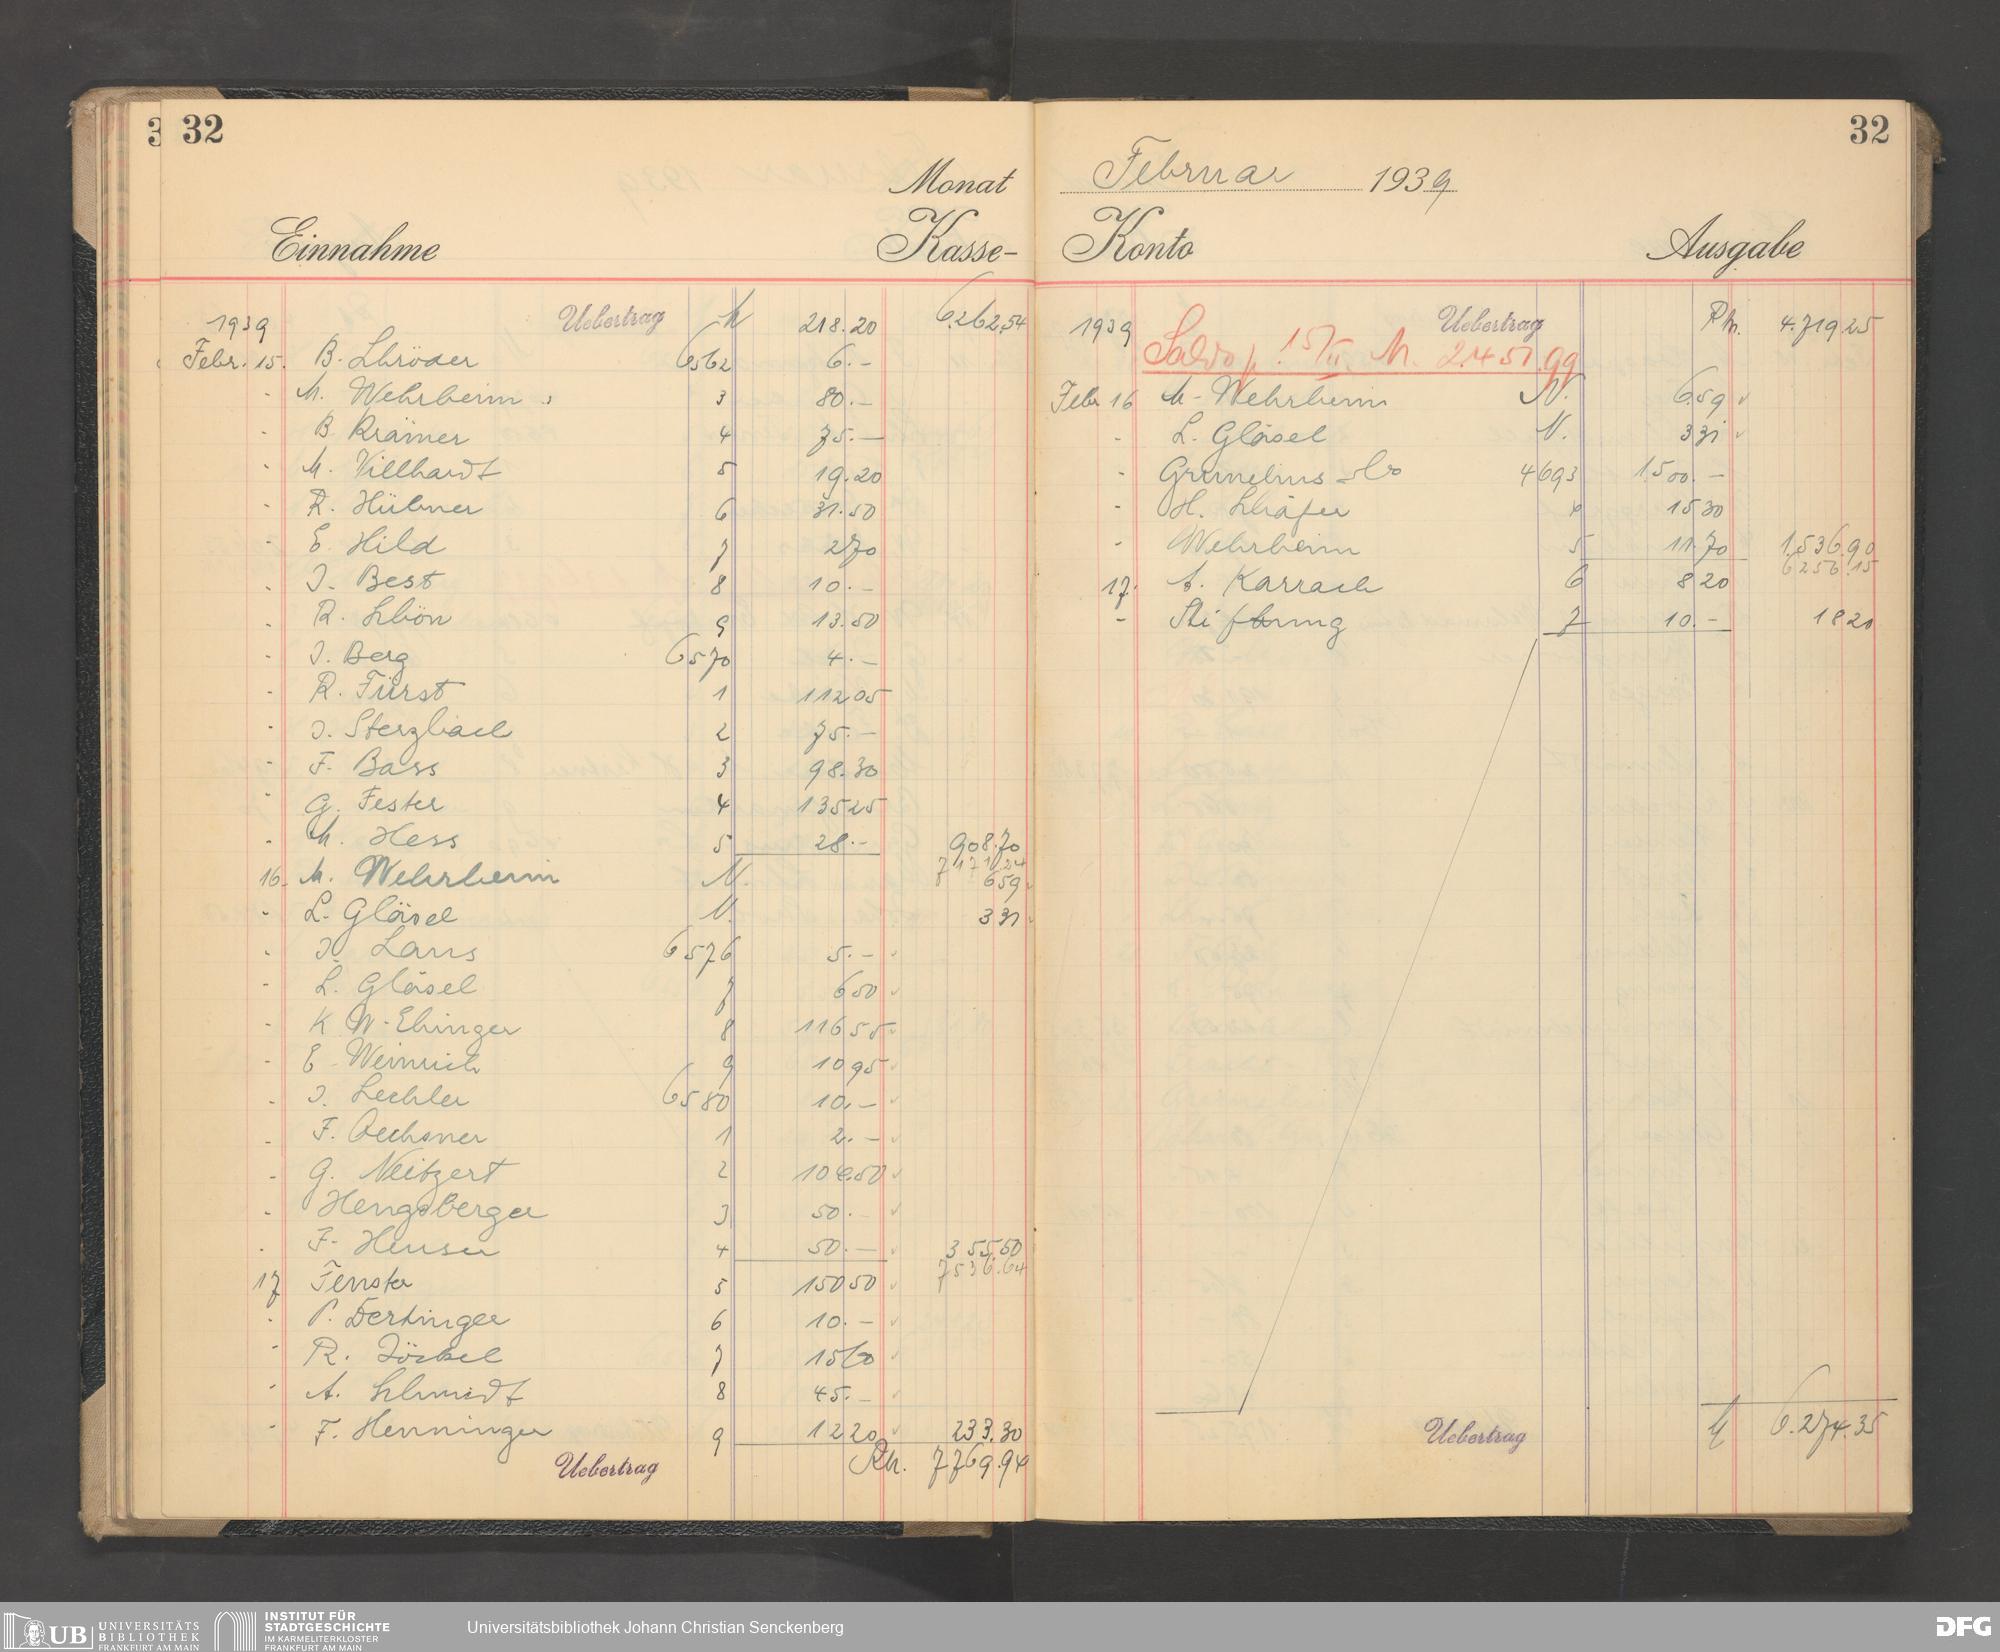 32
Monat
Einnahme Kasse-
1939 Uebertrag M 218.20 6.262.54
Febr. 15. B. Schröder 6562 6.–
- M. Wehrheim 3 80.–
- B. Krämer 4 75.–
- M. Villhardt 5 19.20
- R. Hübner 6 31.50
- E. Hild 7 2 70
- J. Best 8 10.–
- R. Schön 9 13.50
- J. Berg 6570 4.–
- R. Fürst 1 112 05
- J. Sterzbach 2 75.–
- F. Bass 3 98.30
- G. Fester 4 135 25
- M. Hess 5 28.– 908.70
7171.24
16. M. Wehrheim N. 6 59
- L. Gläsel N. 3 31
- J. Laus 6576 5.–
- L. Gläsel 7 6 50
- K. W. Ehinger 8 116 55
- E. Weinrich 9 10 95
- J. Lechler 6580 10.–
- F. Oechsner 1 2.–
- G. Neitzert 2 104.50
- Hengsberger 3 50.–
- F. Heuser 4 50.– 355.50
7536.64
17 Fenster 5 150 50
- P. Dertinger 6 10.–
- R. Jöckel 7 15 60
- A. Schmidt 8 45.–
- F. Henninger 9 12 20 233.30
Uebertrag Rm. 7769.94
32
Februar 1939
Konto Ausgabe
1939 Uebertrag Rm. 4.719.25
Saldo p. 15/II. M. 2.451.99
Febr 16 M. Wehrheim N. 6.59
- L. Gläsel N. 3 31
- Grunelius & Co 4693 1.500.–
- H. Schäfer 4 15 30
- Wehrheim 5 11.70 1.536.90
6256.15
17. A. Karrach 6 8 20
- Stiftung 7 10.– 18 20
Uebertrag M 6.274.35
UB UNIVERSITÄTS
BIBLIOTHEK
FRANKFURT AM MAIN
INSTITUT FÜR
STADTGESCHICHTE
IM KARMELITERKLOSTER
FRANKFURT AM MAIN
Universitätsbibliothek Johann Christian Senckenberg
DFG